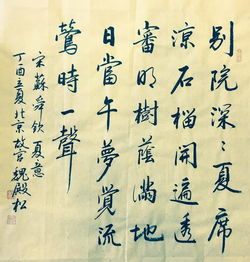 别院深〻夏席
涼石榴開遍透
明樹蔭滿地
日當午夢覺流
鶯時一聲
宋蘇舜欽夏意
丁酉立夏北京故宫魏殿松